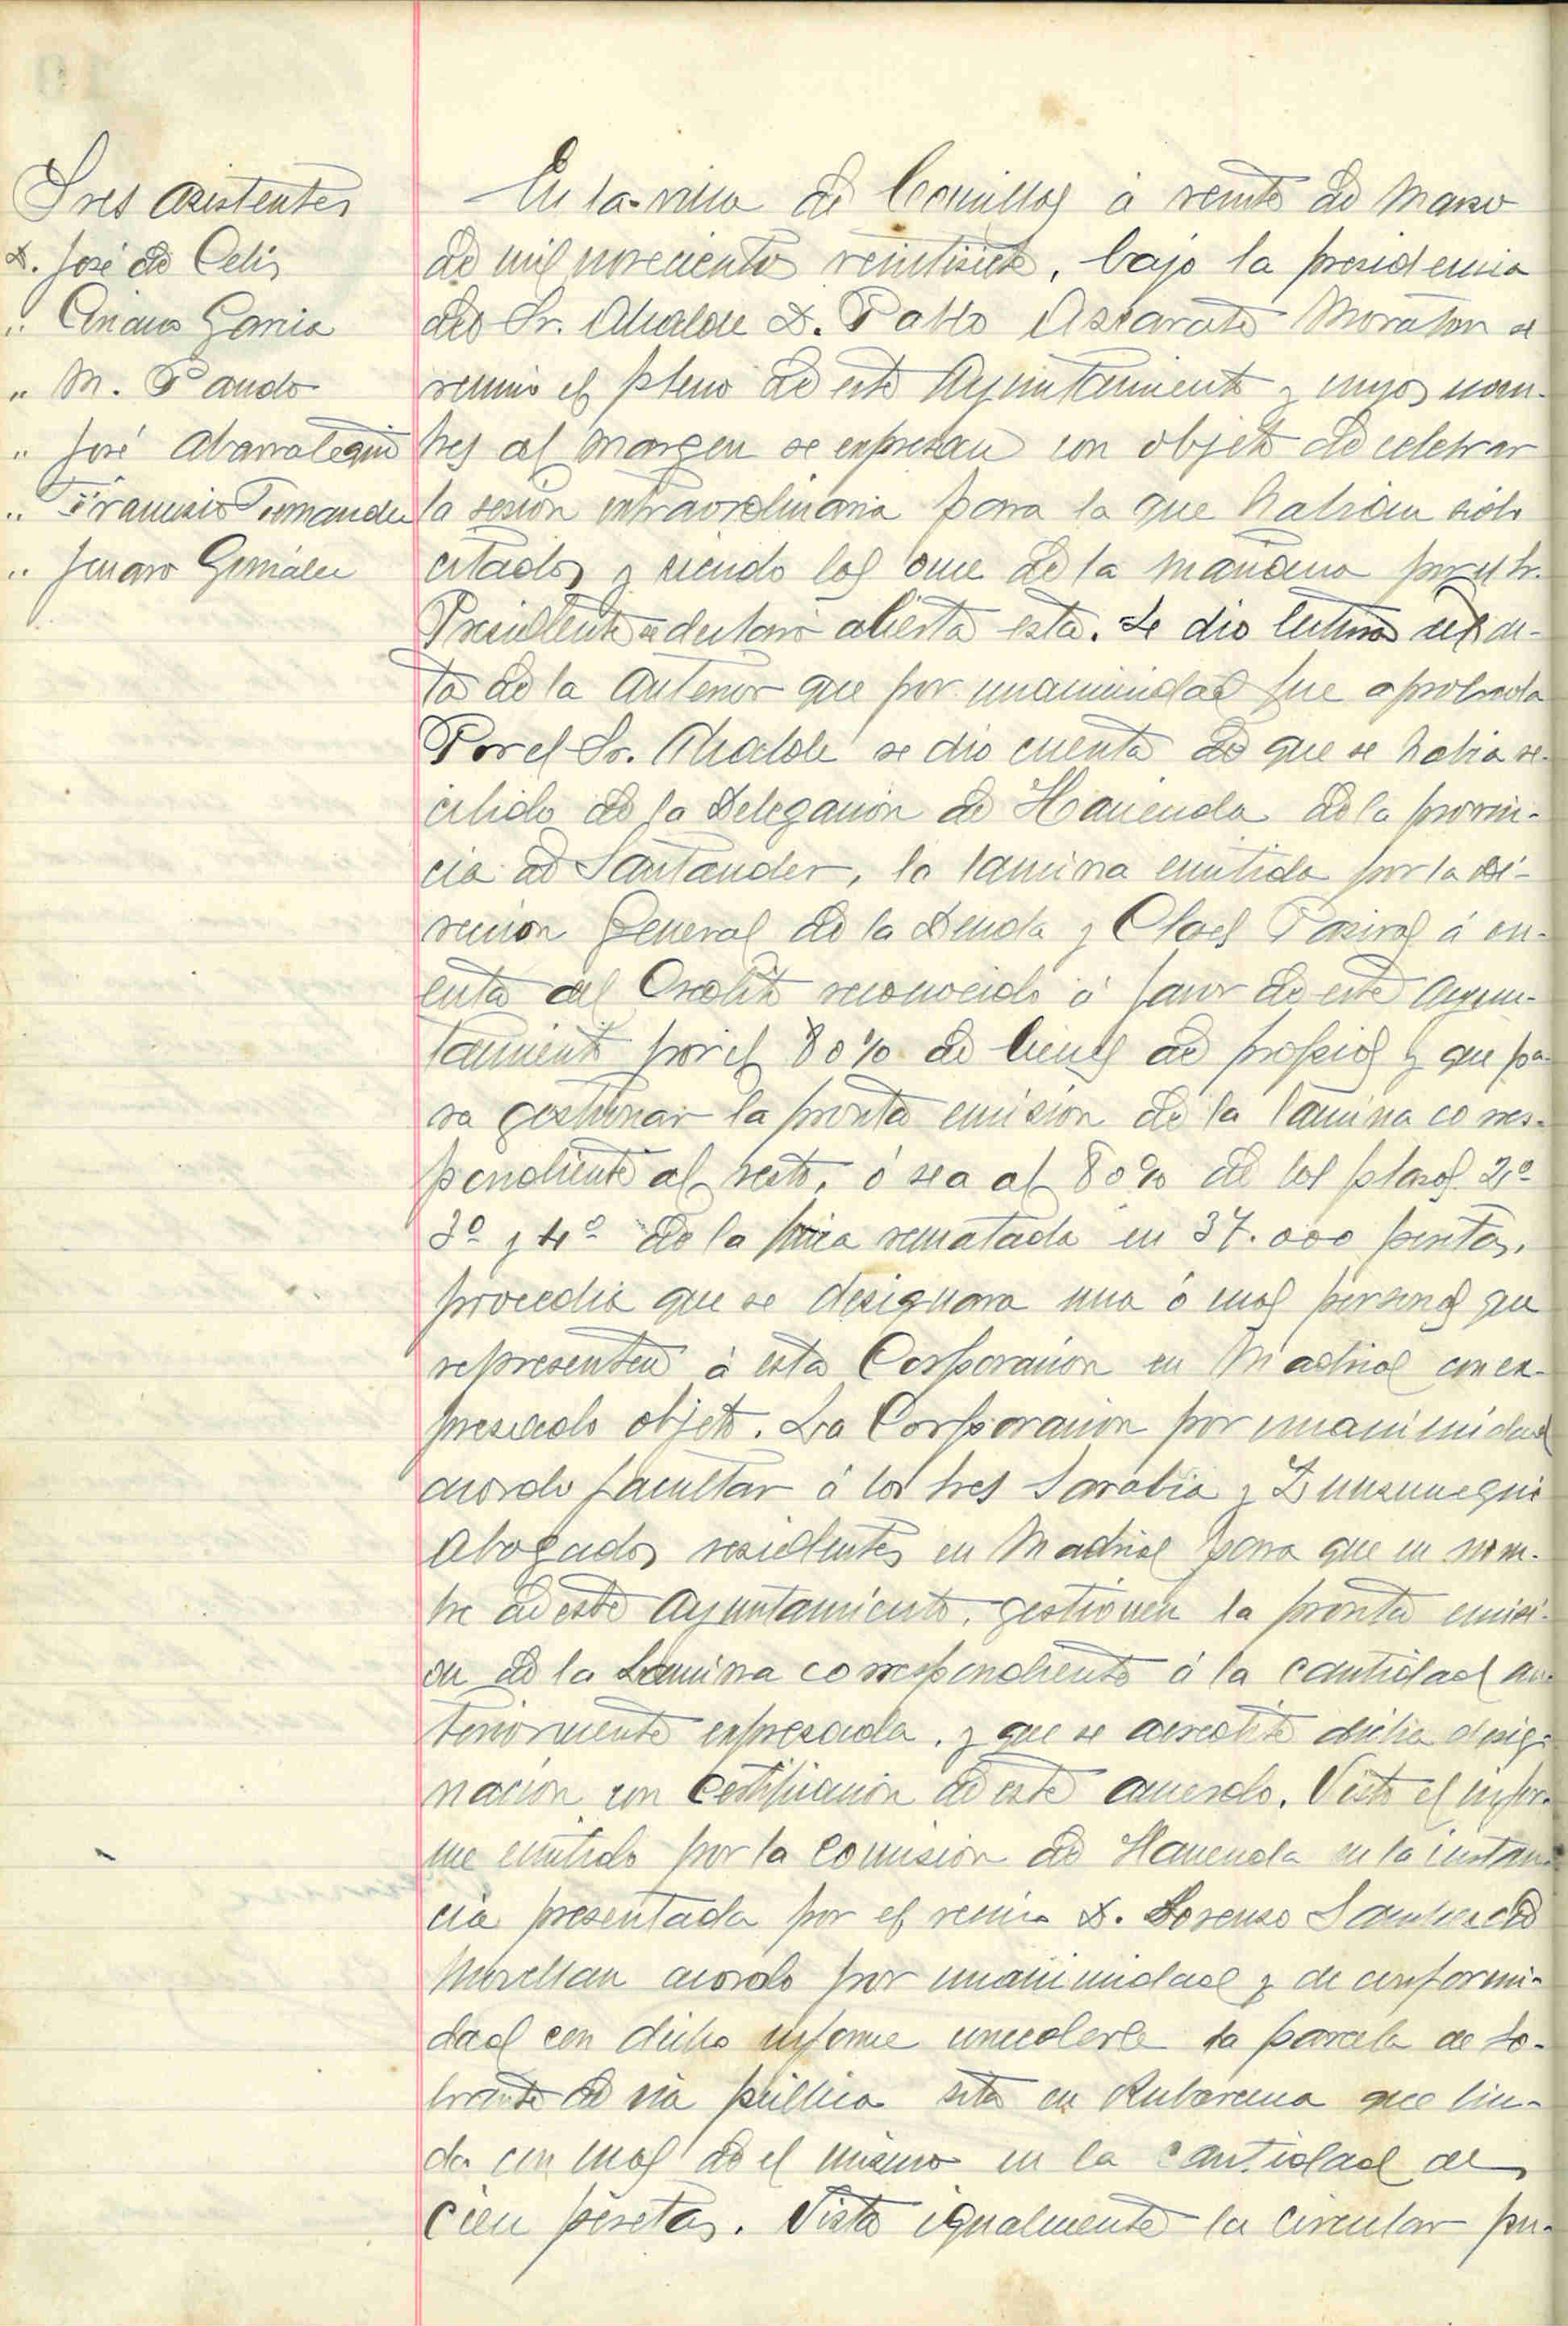 Sres asistentes
D. José de Celis
" Ciriaco Garcia
" M. Pando
" José Abarrategui
" Francisco Fernandez
" Genaro González
En la villa de Comillas á veinte de Marzo
de mil novecientos veintisiete, bajo la presidencia
del Sr. Alcalde D. Pablo Azcarate Moraton se
reunio el pleno de este Ayuntamiento y cuyos nom-
bres al margen se expresan con objeto de celebrar
la sesion extraordinaria para la que habian sido
citados y siendo las once de la mañana por el Sr.
Presidente se declaró abierta esta. Se dio lectura del ac-
ta de la anterior que por unanimidad fue aprobada
Por el Sr. Alcalde se dio cuenta de que se habia re-
cibido de la Delegación de Hacienda de la provin-
cia de Santander, la lamina emitida por la Di-
rección General de la Deuda y Clases Pasivas á cu-
enta del Credito reconocido á favor de este Ayun-
tamiento por el 80% de bienes de propios y que pa-
ra gestionar la pronta emisión de la lamina corres-
pondiente al resto, ó sea al 80% de los plazos 2º
3º y 4º de la finca rematada en 37.000 pesetas,
procedia que se designara una ó mas personas que
representen á esta Corporación en Madrid con ex-
presado objeto. La Corporación por unanimidad
acordo facultar á los Sres Sarabia y Zunzunegui
Abogados residentes en Madrid para que en nom-
bre de este Ayuntamiento, gestionen la pronta emisi-
on de la Lamina correspondiente á la cantidad an-
teriormente expresada, y que se acredite dicha desig-
nación con Certificación de este acuerdo. Visto el infor-
me emitido por la Comisión de Hacienda en la instan-
cia presentada por el vecino D. Lorenzo
acordo por unanimidad y de conformi-
dad con dicho informe concederle la parcela de so-
brante de via publica sita en Rubarcena que lin-
da con mas de el mismo en la cantidad de
cien pesetas. Vista igualmente la circular pu-